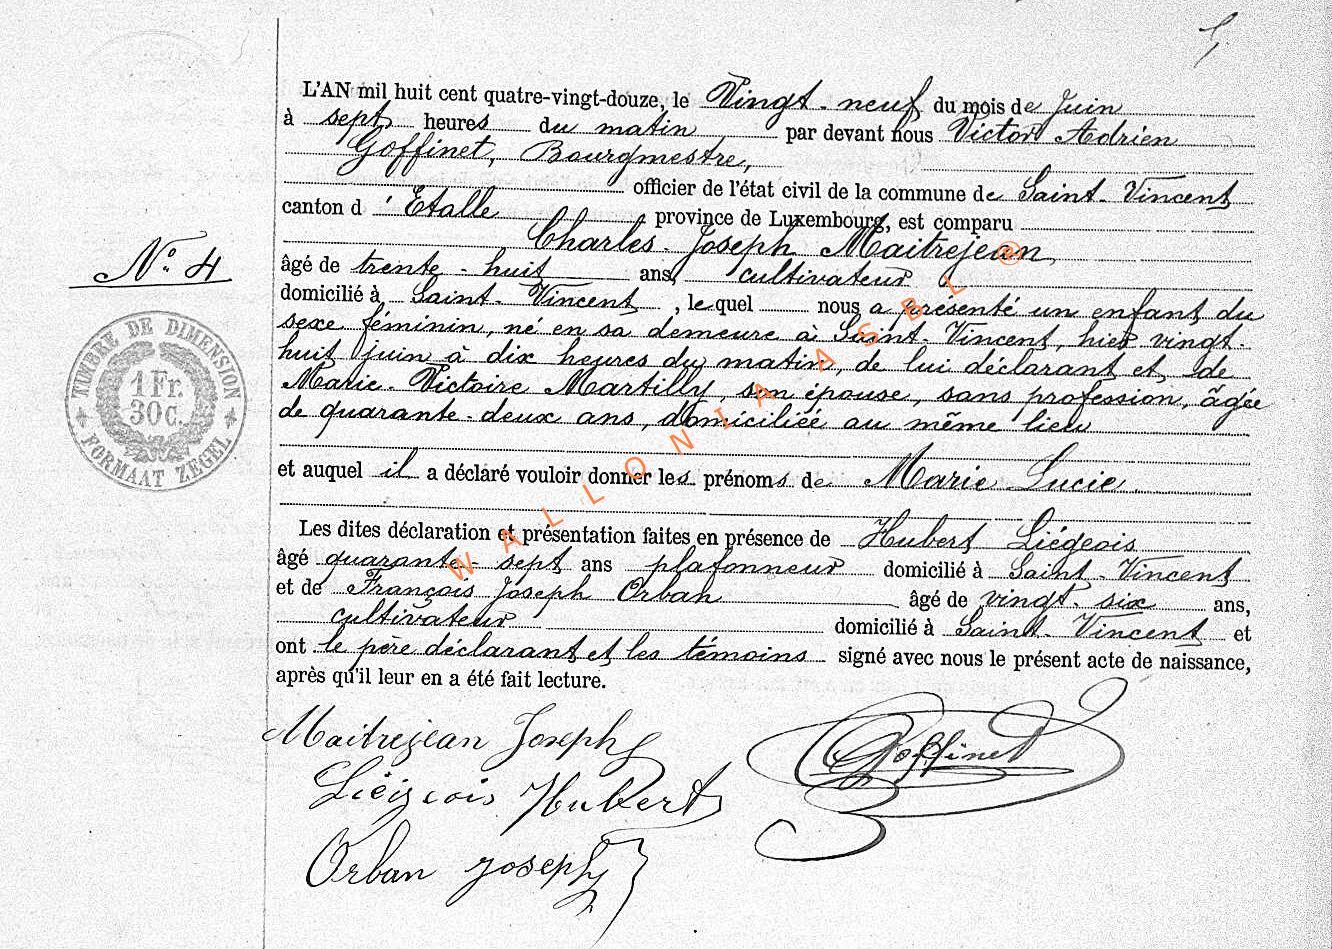 5
L'AN mil huit cent quatre-vingt-douze, le Vingt-neuf du mois de Juin
à sept heures du matin par devant nous Victor Adrien
Goffinet, Bourgmestre,
officier de l'état civil de la commune de Saint-Vincent
canton d'Etalle province de Luxembourg, est comparu
Charles-Joseph Maitrejean
N° 4
âgé de trente-huit ans, cultivateur
domicilié à Saint-Vincent, lequel nous a présenté un enfant du
sexe féminin, né en sa demeure à Saint-Vincent, hier vingt-
huit juin à dix heures du matin, de lui déclarant et de
Marie-Victoire Martilly, son épouse, sans profession, âgée
de quarante-deux ans, domiciliée au même lieu
TIMBRE DE DIMENSION
1 Fr.
30c.
FORMAAT ZEGEL
et auquel il a déclaré vouloir donner les prénoms de Marie Lucie
Les dites déclaration et présentation faites en présence de Hubert Liégeois
âgé quarante-sept ans plafonneur domicilié à Saint-Vincent
et de François Joseph Orban âgé de vingt-six ans,
cultivateur domicilié à Saint-Vincent et
ont le père déclarant et les témoins signé avec nous le présent acte de naissance,
après qu'il leur en a été fait lecture.
Maitrejean Joseph
Goffinet
Liégeois Hubert
Orban Joseph
WALLONIA ASBL @